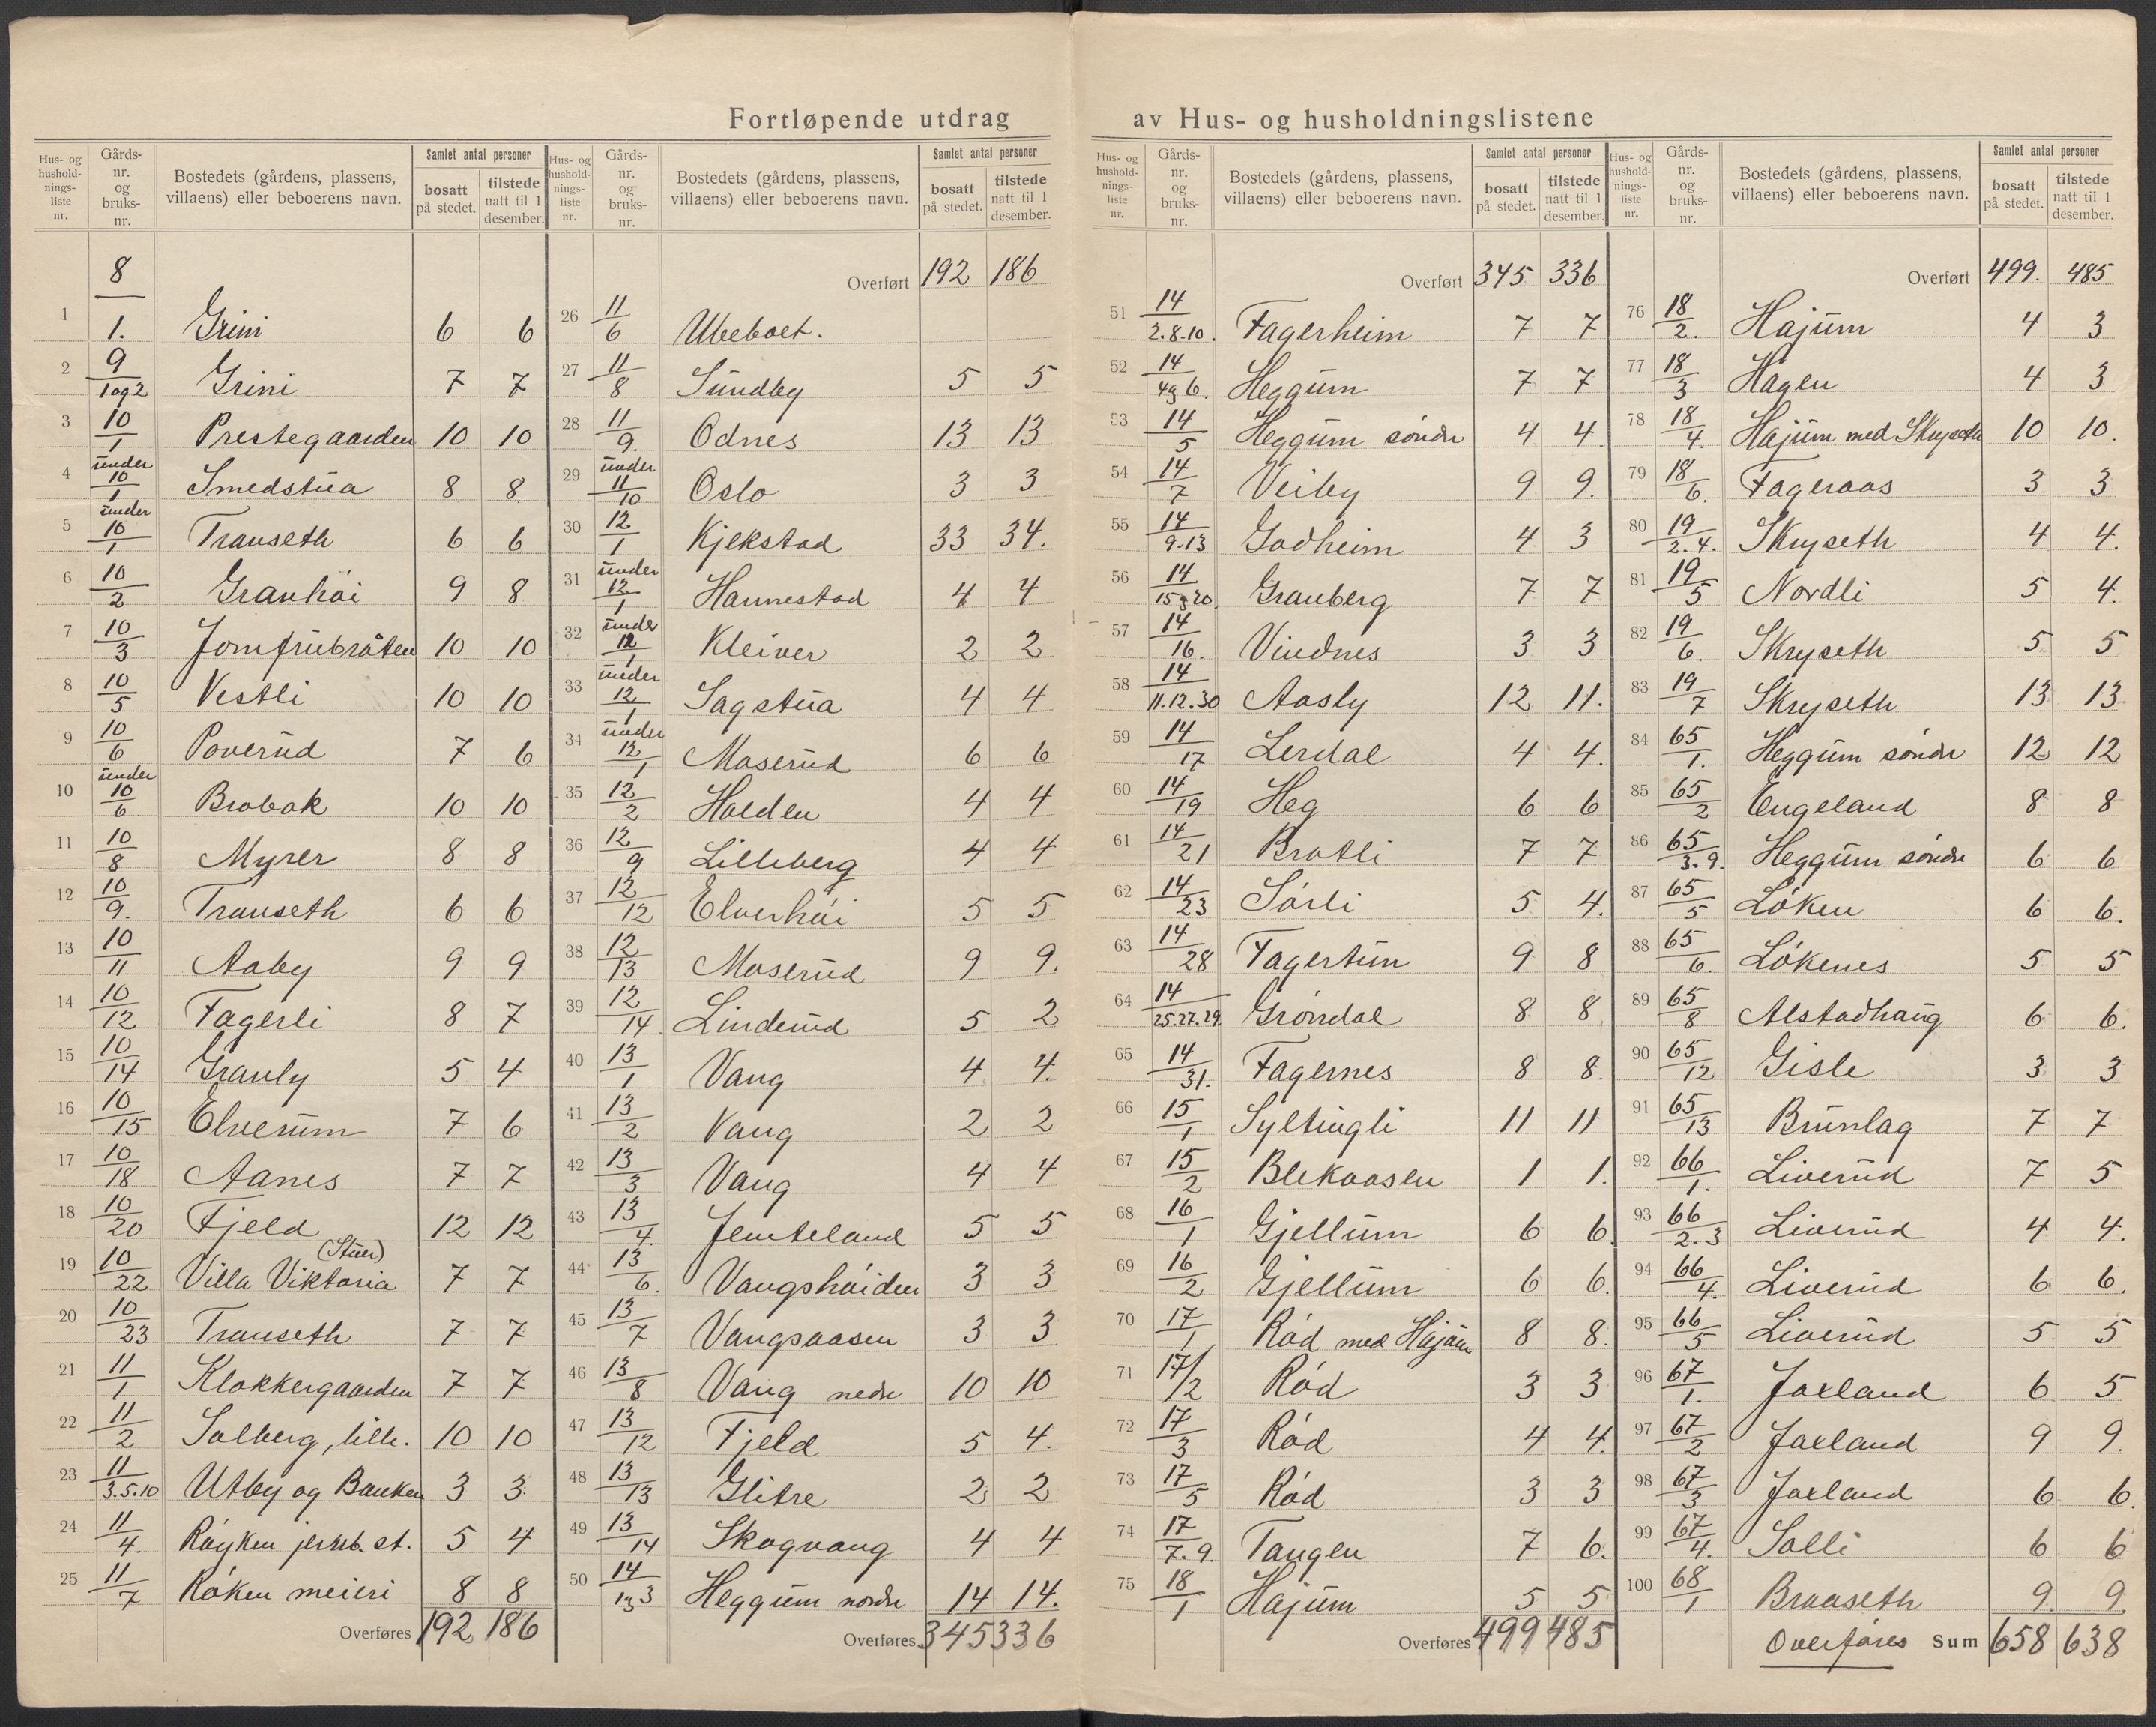 Fortløpende utdrag av Hus- og husholdningslistene
Hus- og hushold- nings- liste nr. | Gårds- nr. og bruks- nr. | Bostedets (gårdens, plassens, villaens) eller beboerens navn. | Samlet antal personer | bosatt på stedet. | tilstede natt til 1 desember.
1 8/1. Grini 6 6
2 9/1 og 2 Grini 7 7
3 10/1 Prestegaarden 10 10
4 under 10/1 Smedstua 8 8
5 under 10/1 Transeth 6 6
6 10/2 Granhøi 9 8
7 10/3 Jomfrubråten 10 10
8 10/5 Vestli 10 10
9 10/6 Poverud 7 6
10 under 10/6 Brobak 10 10
11 10/8 Myrer 8 8
12 10/9. Transeth 6 6
13 10/11 Aaby 9 9
14 10/12 Fagerli 8 7
15 10/14 Granly 5 4
16 10/15 Elverum 7 6
17 10/18 Aanes 7 7
18 10/20 Fjeld 12 12
19 10/22 Villa Viktoria (Stuer) 7 7
20 10/23 Transeth 7 7
21 11/1 Klokkergaarden 7 7
22 11/2 Solberg, lille. 10 10
23 11/3.5.10 Utby og Banken 3 3
24 11/4. Røyken jernb. st. 5 4
25 11/7 Røken meieri 8 8
Overføres 192 186
Hus- og hushold- nings- liste nr. | Gårds- nr. og bruks- nr. | Bostedets (gårdens, plassens, villaens) eller beboerens navn. | Samlet antal personer | bosatt på stedet. | tilstede natt til 1 desember.
Overført 192 186
26 11/6 Ubeboet.
27 11/8 Sundby 5 5
28 11/9. Odnes 13 13
29 under 11/10 Oslo 3 3
30 12/1 Kjekstad 33 34.
31 under 12/1 Hannestad 4 4
32 under 12/1 Kleiver 2 2
33 under 12/1 Sagstua 4 4
34 under 12/1 Moserud 6 6
35 12/2 Holden 4 4
36 12/9 Lilleberg 4 4
37 12/12 Elverhøi 5 5
38 12/13 Moserud 9 9.
39 12/14 Linderud 5 2
40 13/1 Vang 4 4.
41 13/2 Vang 2 2
42 13/3 Vang 4 4
43 13/4. Jemteland 5 5
44 13/6. Vangshøiden 3 3
45 13/7 Vangsaasen 3 3
46 13/8 Vang nedre 10 10
47 13/12 Fjeld 5 4.
48 13/13 Glitre 2 2
49 13/14 Skogvang 4 4
50 14/1 og 3 Heggum nordre 14 14.
Overføres 345 336
Hus- og hushold- nings- liste nr. | Gårds- nr. og bruks- nr. | Bostedets (gårdens, plassens, villaens) eller beboerens navn. | Samlet antal personer | bosatt på stedet. | tilstede natt til 1 desember.
Overført 345 336
51 14/2.8.10. Fagerheim 7 7
52 14/4 og 6. Heggum 7 7
53 14/5 Heggum søndre 4 4
54 14/7 Veiby 9 9.
55 14/9.13 Godheim 4 3
56 14/15 og 20 Granberg 7 7
57 14/16. Vindnes 3 3
58 14/11.12.30 Aasly 12 11.
59 14/17 Lerdal 4 4.
60 14/19 Heg 6 6
61 14/21 Bratli 7 7
62 14/23 Sørli 5 4.
63 14/28 Fagertun 9 8
64 14/25.27.29. Grøndal 8 8
65 14/31. Fagernes 8 8.
66 15/1 Syltingli 11 11
67 15/2 Blekaasen 1 1.
68 16/1 Gjellum 6 6.
69 16/2 Gjellum 6 6.
70 17/1 Rød med Hajum 8 8.
71 17/2 Rød 3 3
72 17/3 Rød 4 4.
73 17/5 Rød 3 3
74 17/7.9. Tangen 7 6.
75 18/1 Hajum 5 5
Overføres 499 485
Hus- og hushold- nings- liste nr. | Gårds- nr. og bruks- nr. | Bostedets (gårdens, plassens, villaens) eller beboerens navn. | Samlet antal personer | bosatt på stedet. | tilstede natt til 1 desember.
Overført 499. 485
76 18/2. Hajum 4 3
77 18/3 Hagen 4 3
78 18/4. Hajum med Skryseth 10 10.
79 18/6. Fageraas 3 3
80 19/2.4. Skryseth 4 4.
81 19/5 Nordli 5 4.
82 19/6. Skryseth 5 5
83 19/7 Skryseth 13 13
84 65/1. Heggum søndre 12 12
85 65/2 Engeland 8 8
86 65/3.9. Heggum søndre 6 6
87 65/5 Løken 6 6.
88 65/6. Løkenes 5 5
89 65/8 Alstadhaug 6 6.
90 65/12 Gisle 3 3
91 65/13 Brunlag 7 7
92 66/1. Liverud 7 5
93 66/2.3 Liverud 4 4.
94 66/4. Liverud 6 6.
95 66/5 Liverud 5 5
96 67/1. Joxland 6 5
97 67/2 Joxland 9 9.
98 67/3 Joxland 6 6.
99 67/4. Solli 6 6
100 68/1 Braaseth 9 9
Overføres Sum 658 638